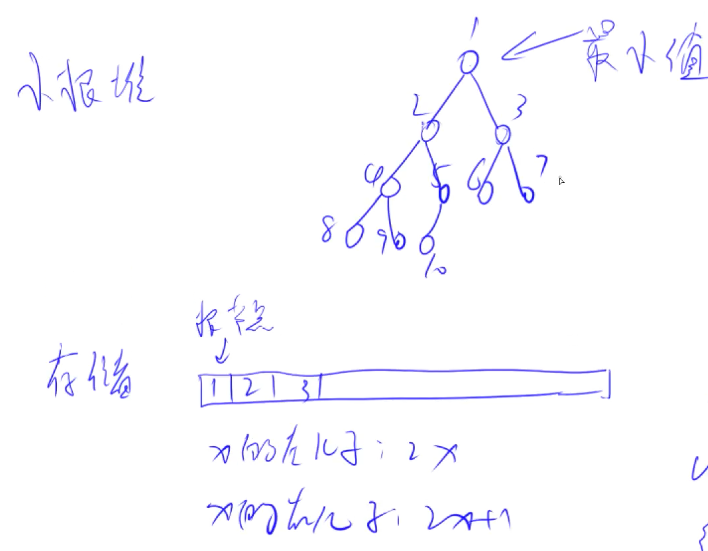 小根堆
最小值
1
2
3
4
5
6
7
8
9
10
根节点
存储
1 2 3
x的左儿子: 2x
x的右儿子: 2x+1